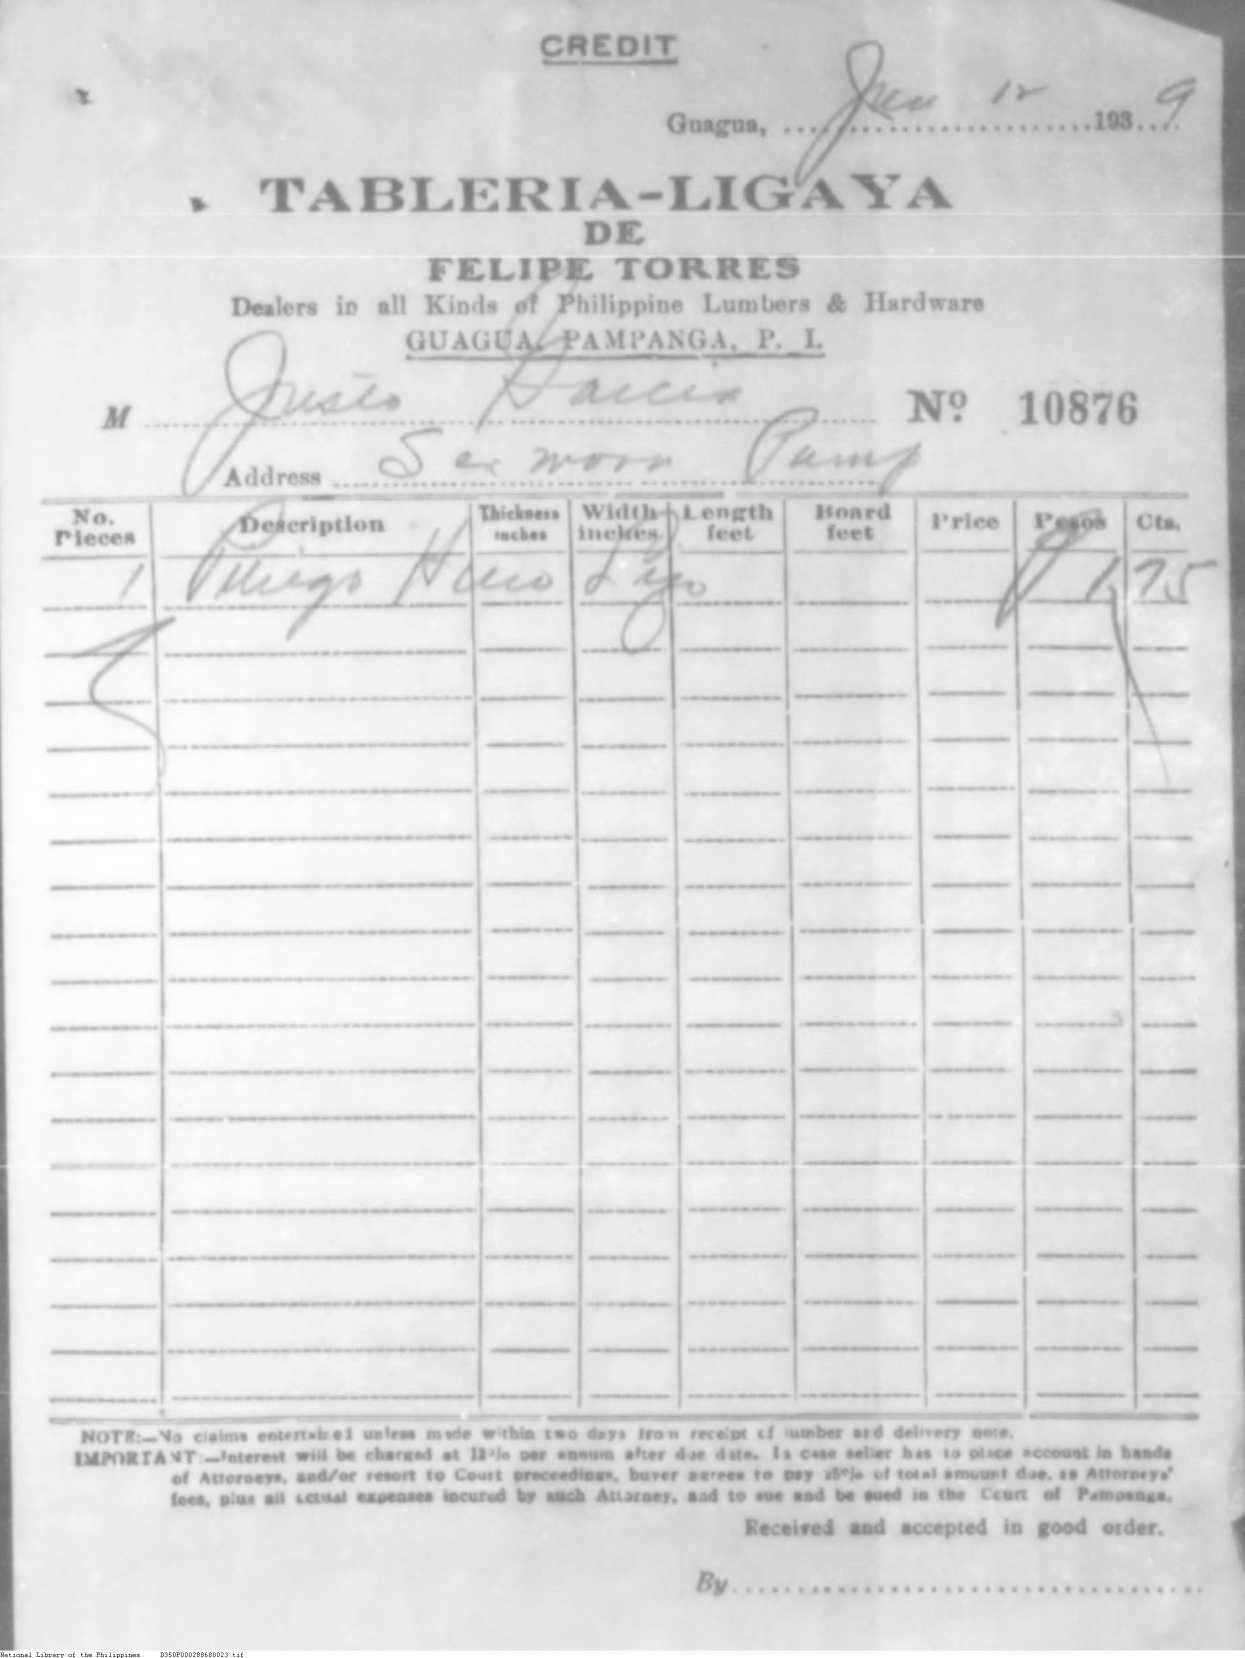 CREDIT
Guagua, Jun 12 1939
TABLERIA-LIGAYA
DE
FELIPE TORRES
Dealers in all Kinds of Philippine Lumbers & Hardware
GUAGUA, PAMPANGA, P. I.
M Justo Garcia Nº 10876
Address Sexmoan Pamp
No. Pieces Description Thickness inches Width inches Length feet Board feet Price Pesos Cts.
1 P 1 75
NOTE:—No claims entertained unless made within two days from receipt of lumber and delivery note.
IMPORTANT:—Interest will be charged at 12% per annum after due date. In case seller has to place account in hands
of Attorneys, and/or resort to Court preceedings, buyer agrees to pay 25% of total amount due, as Attorneys'
fees, plus all actual expenses incured by such Attorney, and to sue and be sued in the Court of Pampanga.
Received and accepted in good order.
By
National Library of the Philippines D350P000288680023.tif